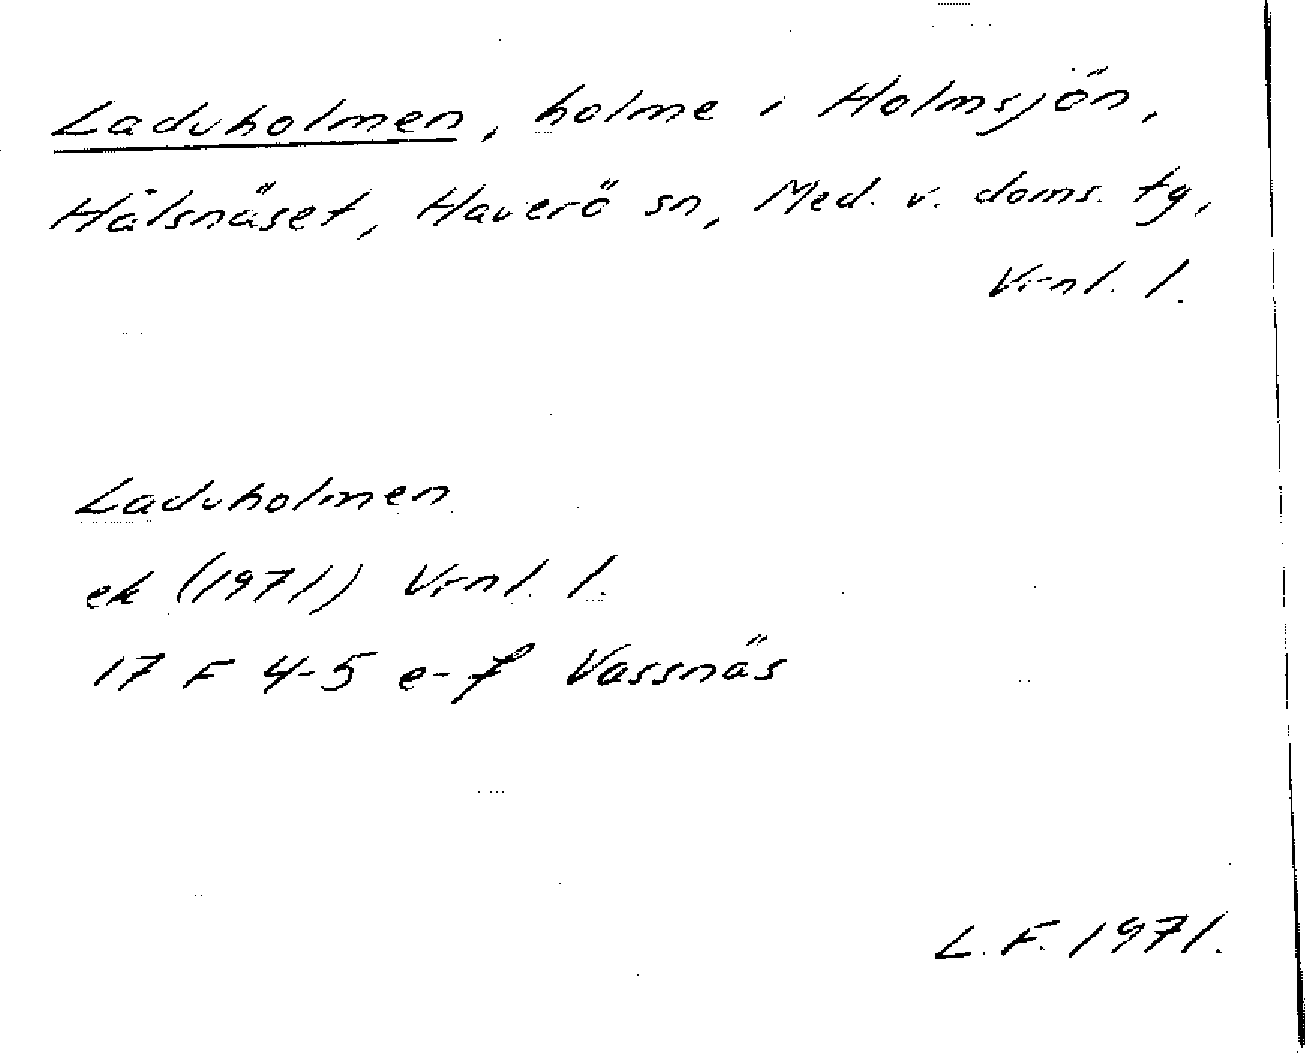 Laduholmen, holme i Holmsjön,
Hålsnäset, Haverö sn, Med. v. doms. tg,
Vrnl. l.
Laduholmen
ek (1971) Vrnl. l.
17 F 4-5 e-f Vassnäs
L.F. 1971.